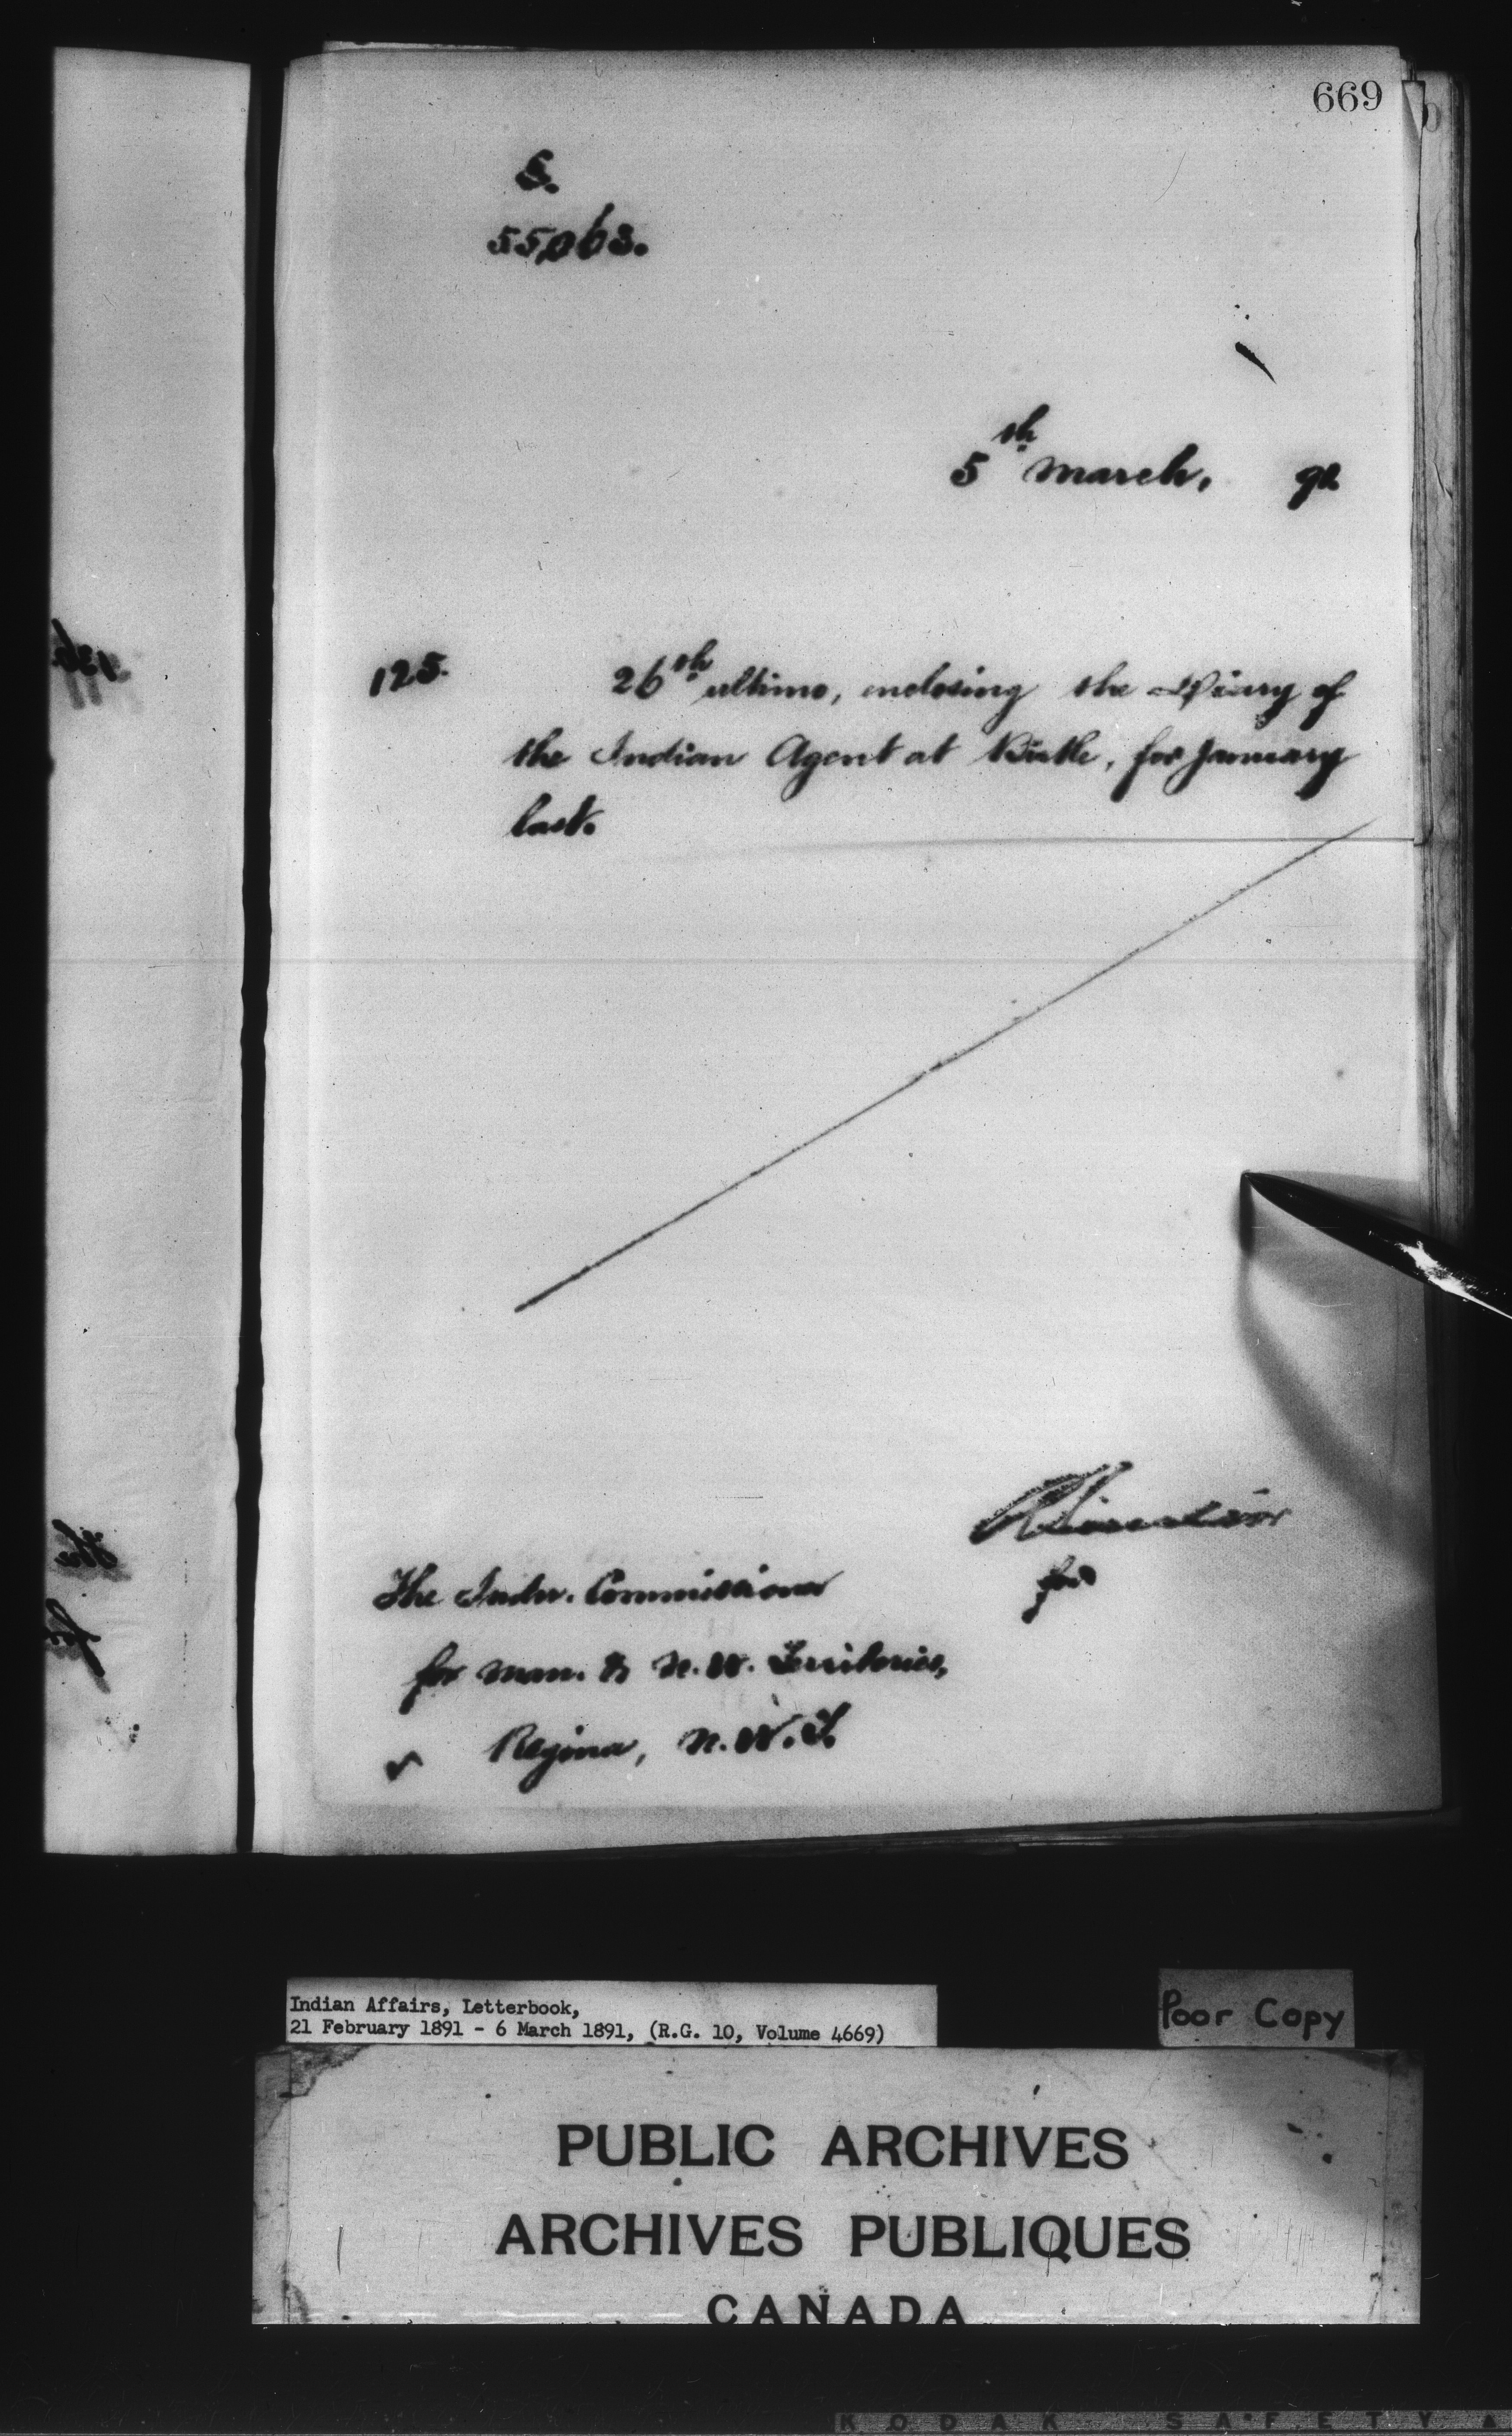 669
S.
55,063.
5th March, 91
125.
26th ultimo, enclosing the Diary of
the Indian Agent at Birtle, for January
last.
RSinclair
for
The Indn. Commissioner
for Man. & N.W. Territories,
Regina, N.W.T.
Indian Affairs, Letterbook,
21 February 1891 - 6 March 1891, (R.G. 10, Volume 4669)
Poor Copy
PUBLIC ARCHIVES
ARCHIVES PUBLIQUES
CANADA
KODAK SAFETY